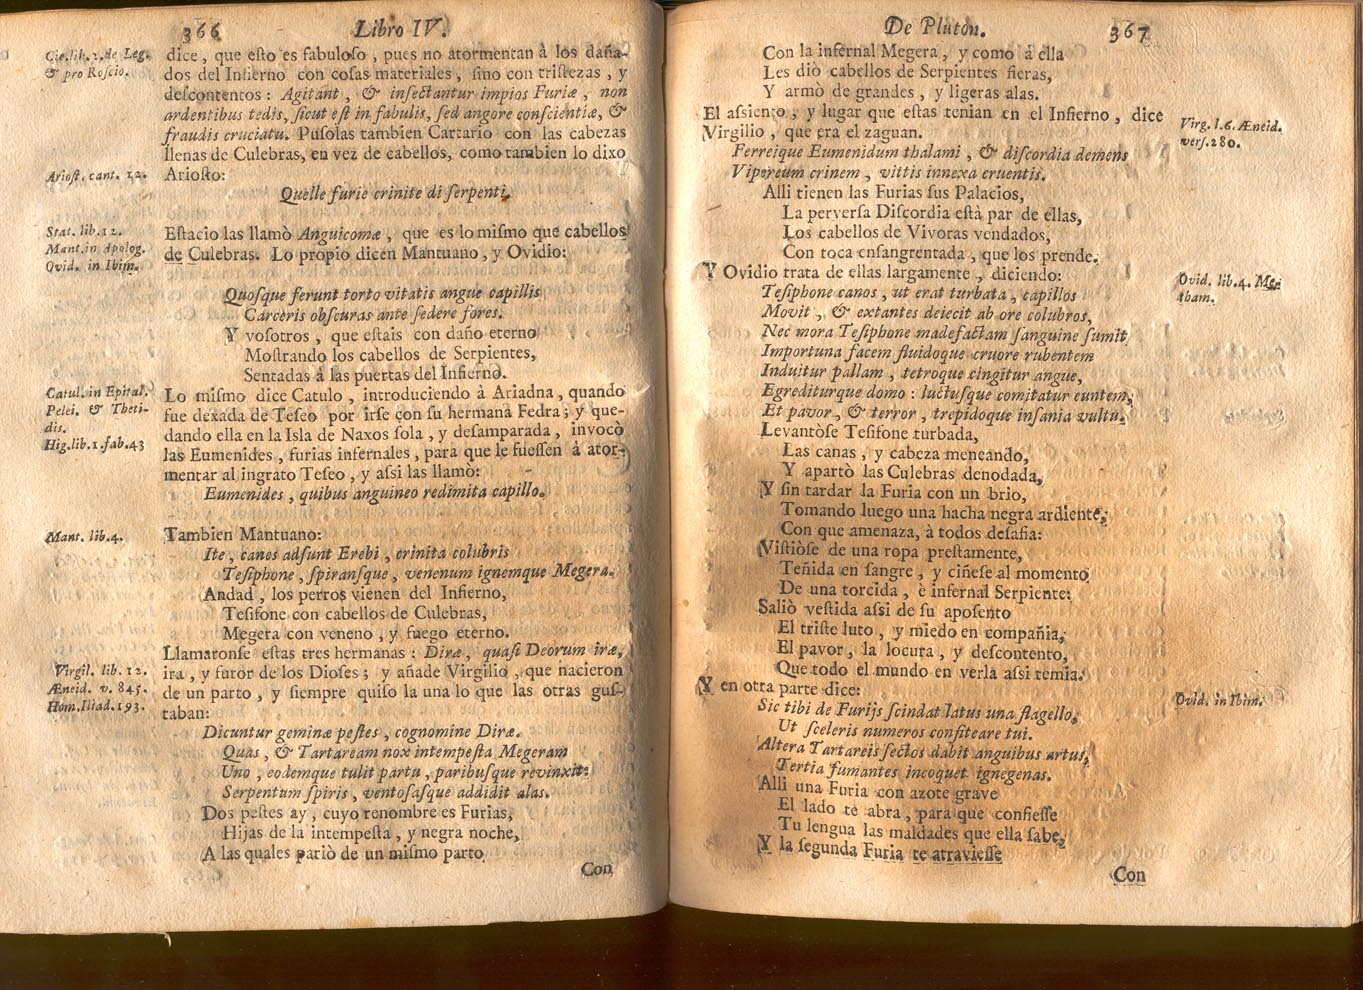 366 Libro IV.
Cic. lib. 1. de Leg.
& pro Roscio.
dice, que esto es fabuloso, pues no atormentan à los daña-
dos del Infierno con cosas materiales, sino con tristezas, y
descontentos: Agitant, & insectantur impios Furiæ, non
ardentibus tedis, sicut est in fabulis, sed angore conscientiæ, &
fraudis cruciatu. Pusolas tambien Cartario con las cabezas
llenas de Culebras, en vez de cabellos, como tambien lo dixo
Ariost. cant. 12.
Ariosto:
Quelle furie crinite di serpenti.
Stat. lib. 12.
Mant. in Apolog.
Ovid. in Ibim.
Estacio las llamò Anguicomæ, que es lo mismo que cabellos
de Culebras. Lo propio dicen Mantuano, y Ovidio:
Quosque ferunt torto vitatis angue capillis
Carceris obscuras ante sedere fores.
Y vosotros, que estais con daño eterno
Mostrando los cabellos de Serpientes,
Sentadas à las puertas del Infierno.
Catul. in Epital.
Pelei. & Theti-
dis.
Hig. lib. 1. fab. 43
Lo mismo dice Catulo, introduciendo à Ariadna, quando
fue dexada de Teseo por irse con su hermana Fedra; y que-
dando ella en la Isla de Naxos sola, y desamparada, invocò
las Eumenides, furias infernales, para que le fuessen à ator-
mentar al ingrato Teseo, y assi las llamò:
Eumenides, quibus anguineo redimita capillo.
Mant. lib. 4.
Tambien Mantuano:
Ite, canes adsunt Erebi, crinita colubris
Tesiphone, spiransque, venenum ignemque Megera.
Andad, los perros vienen del Infierno,
Tesifone con cabellos de Culebras,
Megera con veneno, y fuego eterno.
Virgil. lib. 12.
Æneid. v. 845.
Hom. Iliad. 193.
Llamaronse estas tres hermanas: Diræ, quasi Deorum iræ,
ira, y furor de los Dioses; y añade Virgilio, que nacieron
de un parto, y siempre quiso la una lo que las otras gus-
taban:
Dicuntur geminæ pestes, cognomine Diræ.
Quas, & Tartaream nox intempesta Megeram
Uno, eodemque tulit partu, paribusque revinxit:
Serpentum spiris, ventosasque addidit alas.
Dos pestes ay, cuyo renombre es Furias,
Hijas de la intempesta, y negra noche,
A las quales pariò de un mismo parto
Con
De Pluton. 367
Con la infernal Megera, y como à ella
Les diò cabellos de Serpientes fieras,
Y armò de grandes, y ligeras alas.
El assiento, y lugar que estas tenian en el Infierno, dice
Virgilio, que era el zaguan.
Virg. l. 6. Æneid.
vers. 280.
Ferreique Eumenidum thalami, & discordia demens
Vipereum crinem, vittis innexa cruentis.
Alli tienen las Furias sus Palacios,
La perversa Discordia està par de ellas,
Los cabellos de Vivoras vendados,
Con toca ensangrentada, que los prende.
Y Ovidio trata de ellas largamente, diciendo:
Ovid. lib. 4. Me-
tham.
Tesiphone canos, ut erat turbata, capillos
Movit, & extantes deiecit ab ore colubros,
Nec mora Tesiphone madefactam sanguine sumit
Importuna facem fluidoque cruore rubentem
Induitur pallam, tetroque cingitur angue,
Egrediturque domo: luctusque comitatur euntem,
Et pavor, & terror, trepidoque insania vultu.
Levantòse Tesifone turbada,
Las canas, y cabeza meneando,
Y apartò las Culebras denodada,
Y sin tardar la Furia con un brio,
Tomando luego una hacha negra ardiente,
Con que amenaza, à todos desafia:
Vistiòse de una ropa prestamente,
Teñida en sangre, y ciñese al momento
De una torcida, è infernal Serpiente:
Saliò vestida assi de su aposento
El triste luto, y miedo en compañia,
El pavor, la locura, y descontento,
Que todo el mundo en verla assi temia.
Y en otra parte dice:
Ovid. in Ibim.
Sic tibi de Furijs scindat latus una flagello,
Ut sceleris numeros confiteare tui.
Altera Tartareis sectos dabit anguibus artus,
Tertia fumantes incoquet ignegenas.
Alli una Furia con azote grave
El lado te abra, para que confiesse
Tu lengua las maldades que ella sabe,
Y la segunda Furia te atraviesse
Con